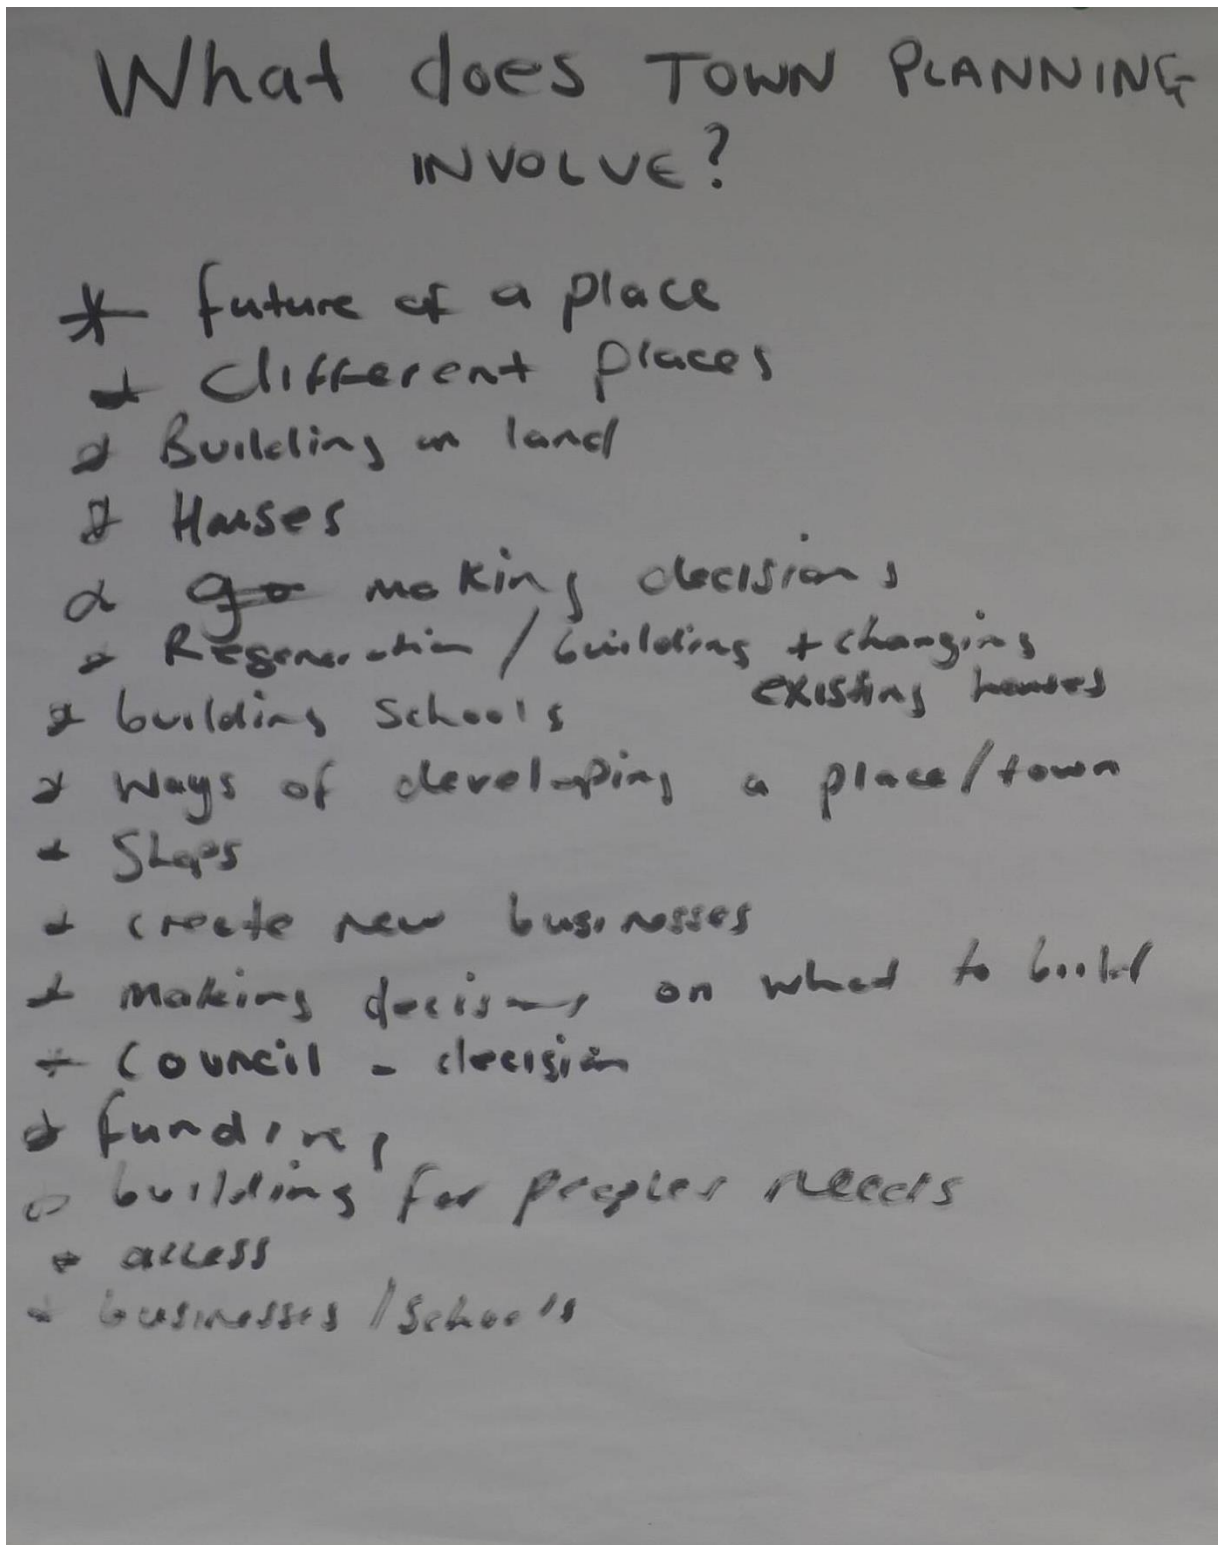 What does TOWN PLANNING
INVOLVE?
* future of a place
* different places
* Building on land
* Houses
* go making decisions
* Regeneration / building + changing
existing houses
* building schools
* Ways of developing a place/town
* Shops
* create new businesses
* making decisions on what to build
* Council - decision
* funding
* building for peoples needs
* access
* businesses / schools